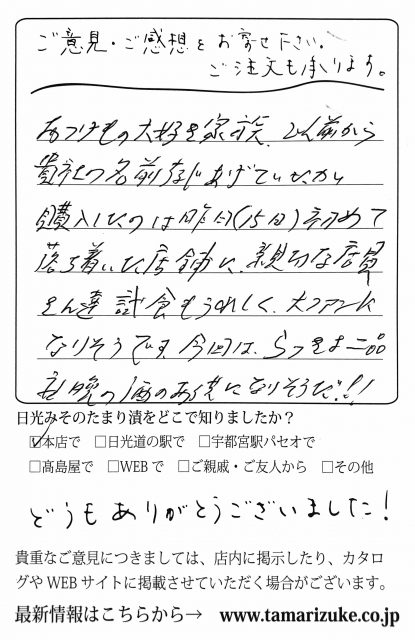 ご意見・ご感想をお寄せ下さい。
ご注文も承ります。
おつけもの大好き家族、以前から
貴社の名前存じあげていたが
購入したのは昨日(15日)初めて
落ち着いた店舗に、親切な店員
さん達 試食もうれしく、大ファンに
なりそうです。今回は、らっきょ二品
今晩の酒のあてになりそうだ!!!
日光みそのたまり漬をどこで知りましたか?
☑本店で □日光道の駅で □宇都宮駅パセオで
□髙島屋で □WEBで □ご親戚・ご友人から □その他
どうもありがとうございました!
貴重なご意見につきましては、店内に掲示したり、カタロ
グやWEBサイトに掲載させていただく場合がございます。
最新情報はこちらから→ www.tamarizuke.co.jp